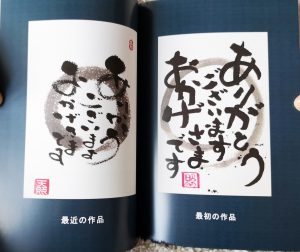 ありがとう
ございます
おかげさまです
最初の作品
ありがとう
ございます
おかげさまです
最近の作品